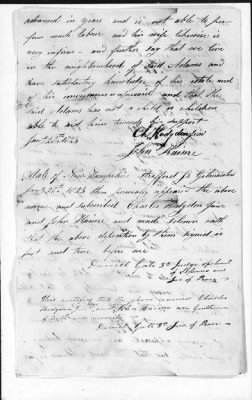 advanced in years and is not able to per-
form much labour and his wife likewise is
very infirm - and further say that we live
in the neighbourhood of Said Adams and
have satisfactory knowledge of his state and
of his and that the
Said Adams has not a child or children
able to aid him towards his support
Jany 20th 1823 Cs Hodgdon
John Haime
State of New Hampshire Strafford ss
Jany 20th 1823 then personally appeared the above
named and subscribed Charles Hodgdon
and John Haime and made Solemn oath
that the above deposition by them signed is
just and true before me
Daniel Gate
of Sessions and
Jus of Peace
This certifies that the above named Charles
Hodgdon and John Haime are Gentlemen
of truth and veracity
Daniel Gate Jus of Peace